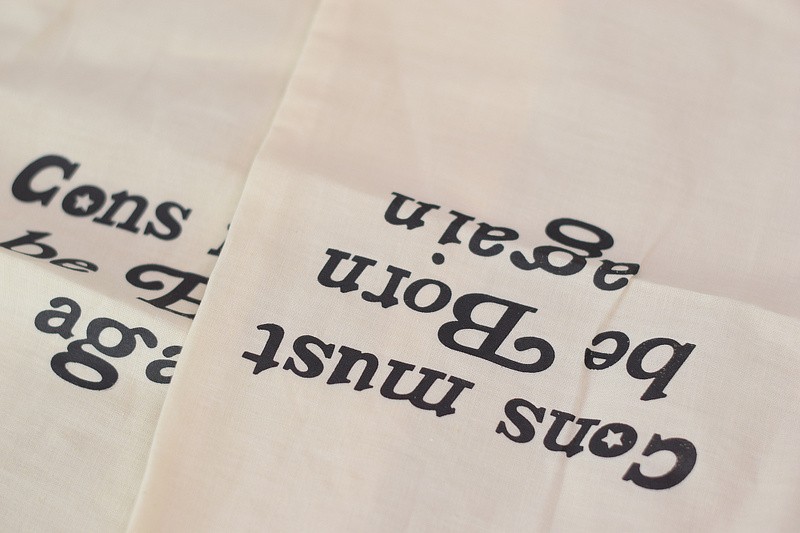 Cons
be B
aga
Cons must
be Born
again